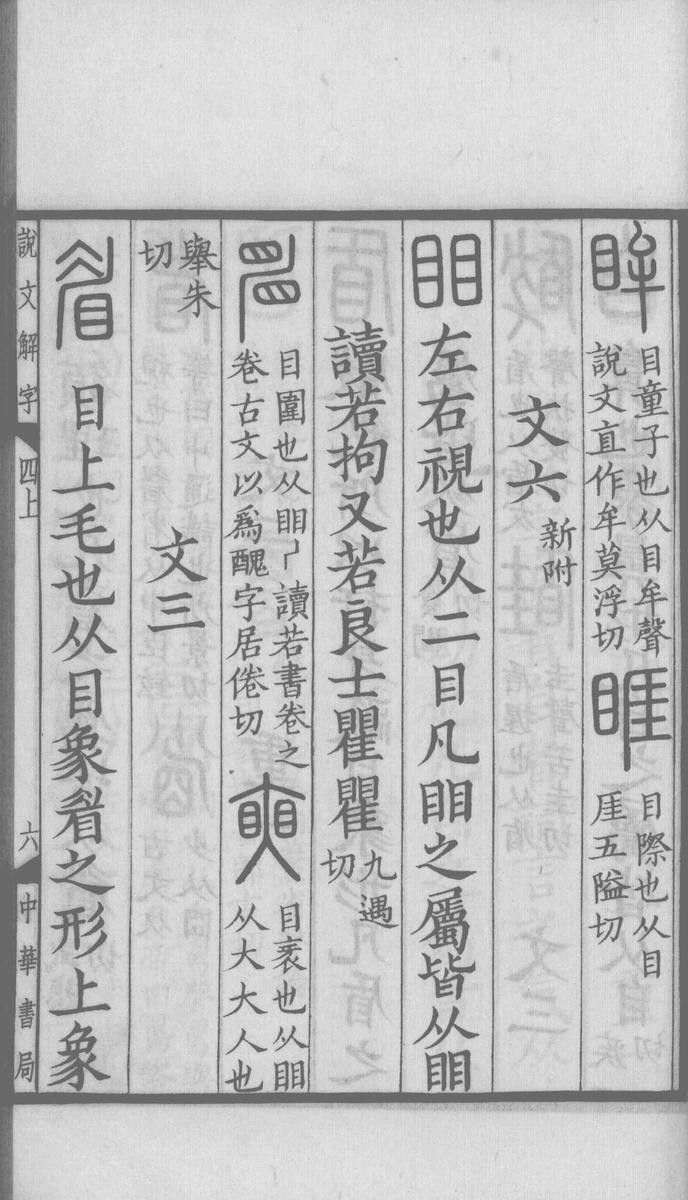 眸
目童子也从目牟聲
說文直作牟莫浮切
睚
目際也从目
厓五隘切
文六
新附
䀠左右視也从二目凡䀠之屬皆从䀠
讀若拘又若良士瞿瞿
九遇
切
目圍也从䀠 讀若書卷之
卷古文以爲醜字居倦切
目衺也从䀠
从大大人也
舉朱
切
文三
眉目上毛也从目象眉之形上象
說文解字 四上 六 中華書局